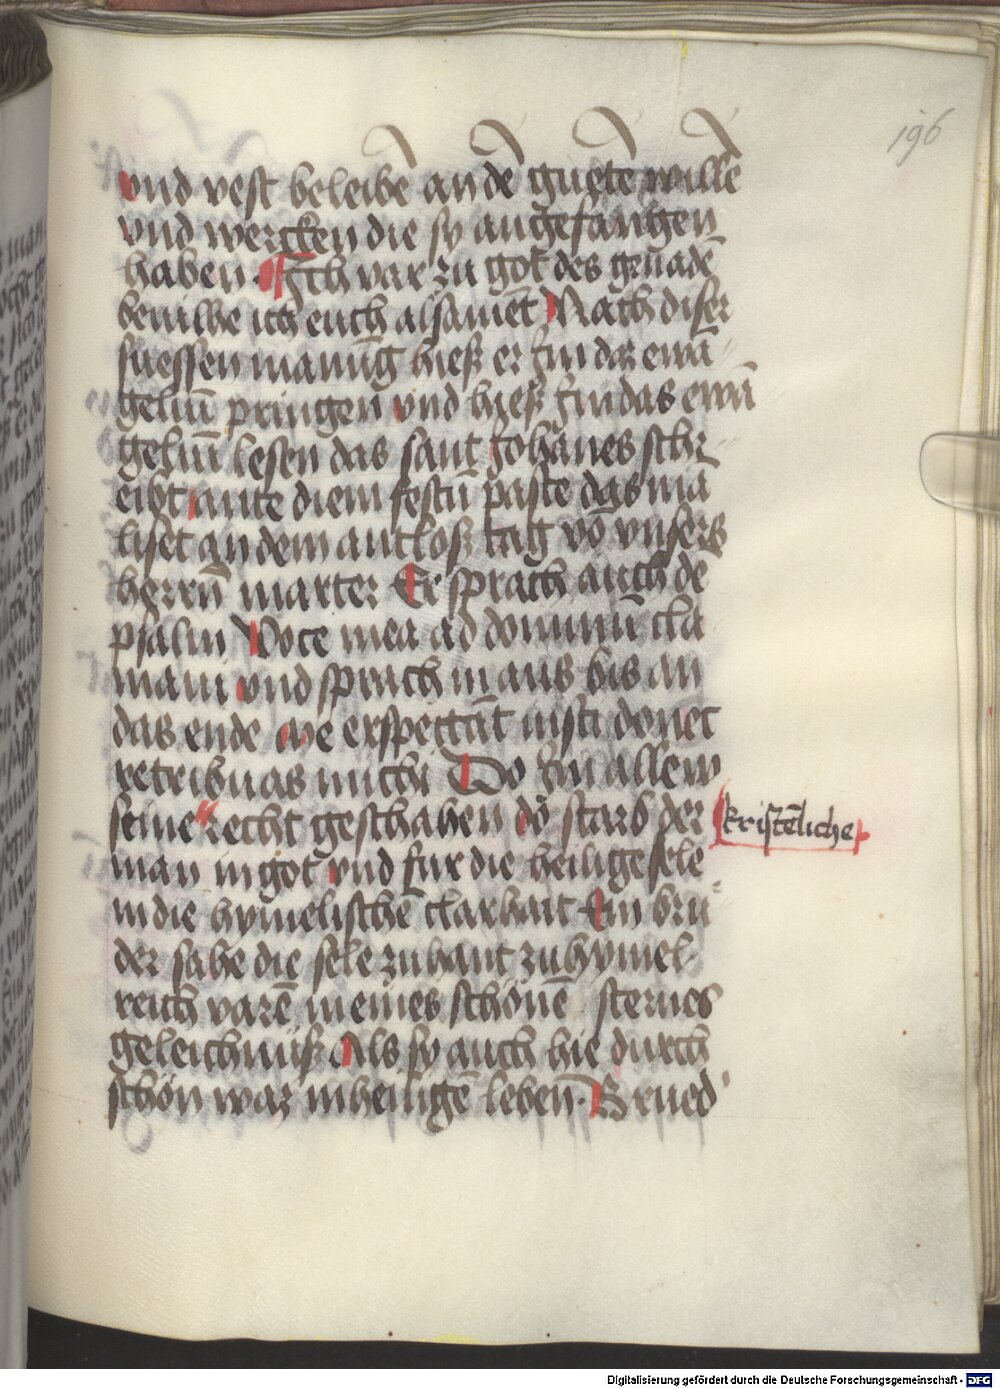 196
vnd vest beleibē an dē guetē wille
vnd wercken die sy angefangen
haben Ich var zu got des genadē
beuilhe ich euch alsamēt Nach diser
suessen manūg hieß er Im daz ewā
geliū pringen vnd hieß Im das ewā
geliū lesen das sant Johānes schr
eibt ante diem festū pasce das mā
liset an dem antloß tag vō vnsers
herrn marter Er sprach auch dē
psalm Voce mea ad dominū cla
maui vnd sprach in aus bis an
das ende me exspectāt iusti donec
retribuas michi Do Im allew
seine recht geschahen do starb der
kristēliche
man in got vnd fur die heilige sele
in die hymelischē clarhait Ein brū
der sahe die sele zu hant zu hymel
reich varē in eines schönē sternes
geleichnuß Als sy auch hie durch
schön waz in heiligē leben. Brued'
Digitalisierung gefördert durch die Deutsche Forschungsgemeinschaft - DFG